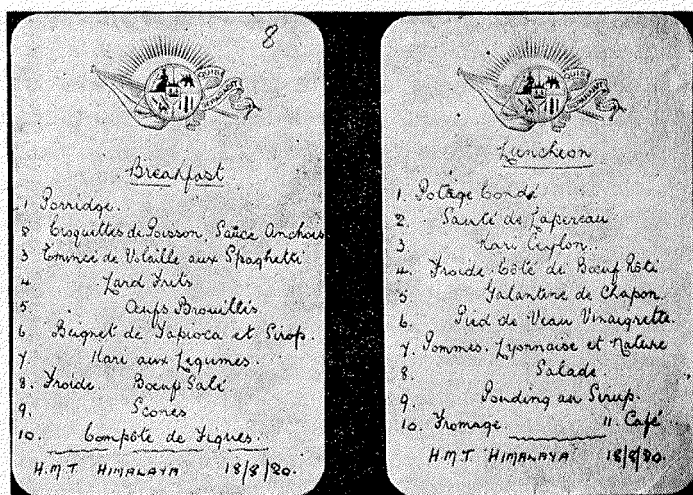 8
QUIS
SEPARABIT
Breakfast
1 Porridge.
2 Croquettes de Poisson, Sauce Anchois
3 Emincé de Volaille aux Spaghetti
4 Lard Frits
5. Oeufs Brouillis
6 Beignet de Tapioca et Sirop.
7. Kari aux Legumes.
8. Froide. Boeuf Salé
9. Scones
10. Compôte de Figues.
H.M.T HIMALAYA 18/8/20.
QUIS
SEPARABIT
Luncheon
1. Potage Condé
2. Sauté de Lapereau
3 Kari Ceylon.
4. Froide. Côté de Boeuf Rôti
5 Galantine de Chapon.
6. Pied de Veau Vinaigrette.
7. Pommes. Lyonnaise et Nature
8 Salade.
9 Pouding au Sirup.
10. Fromage 11. Café
H.M.T "HIMALAYA" 18/8/20.